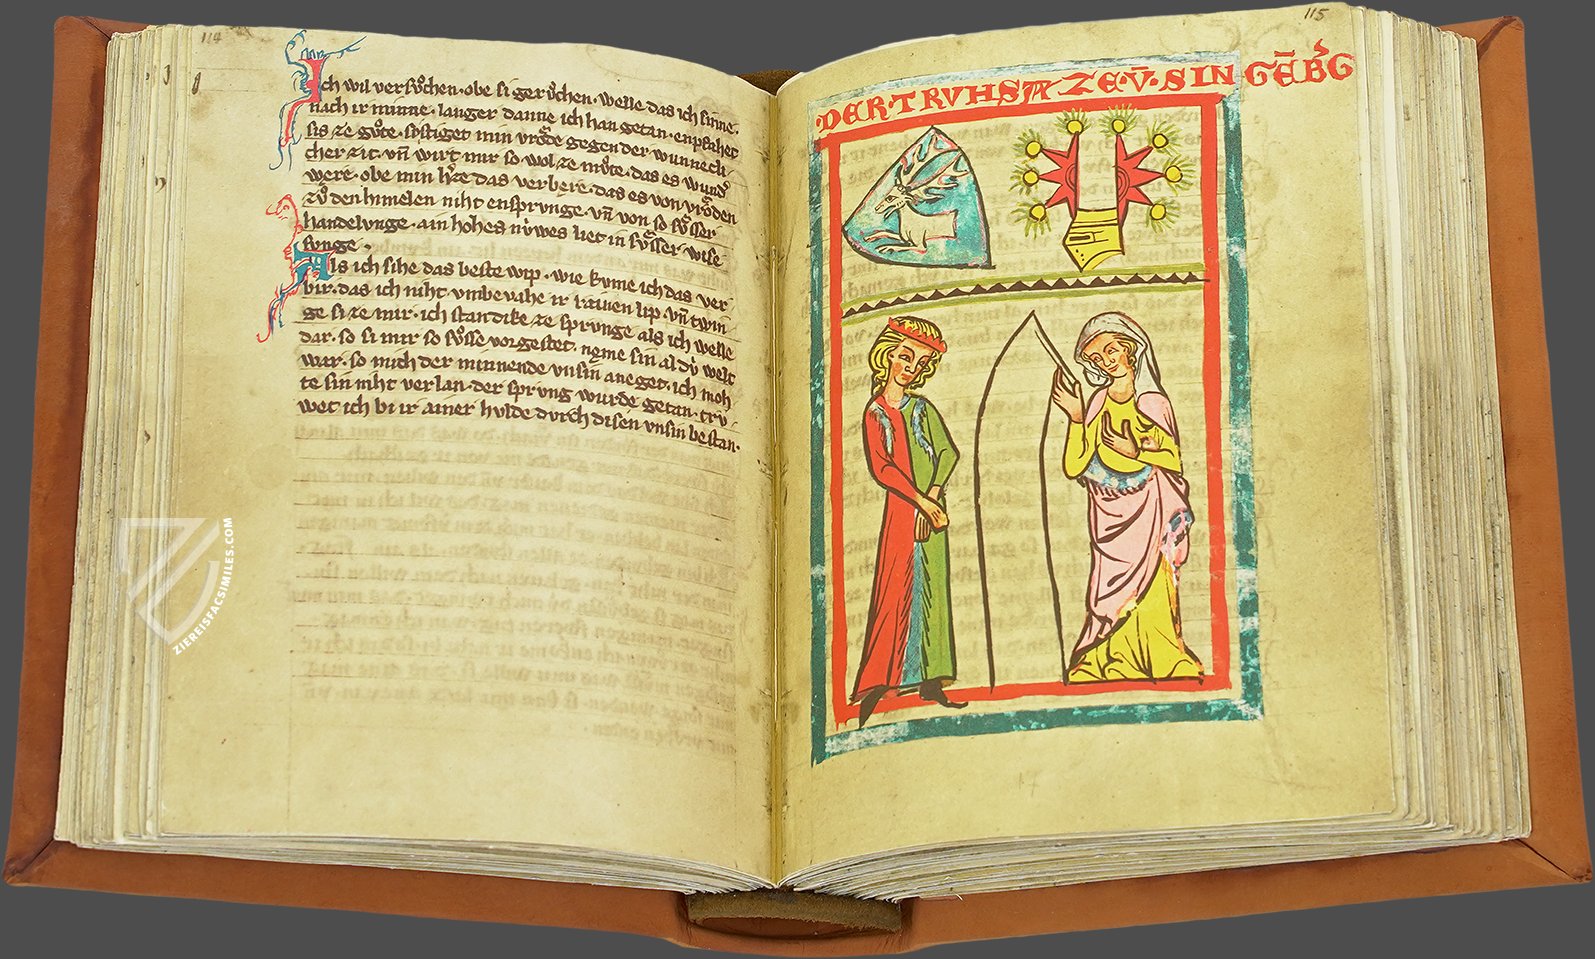 114
Ich wil versůchen · obe si gerůchen · welle das ich sinne ·
nach ir minne · langer danne ich han getan · enpfahet
sis ze gůte · so stiget min vrǒde gegen der wunnecli-
cher zit · vñ wirt mir so wol ze můte · das es wundˀ
were · obe min hˀze das verbere · das es von vrǒden
zů den himelen niht ensprvnge · vñ von so sůsser
handelvnge · ain hohes nṽwes liet in sůsser wise
svnge ·
Als ich sihe das beste wip · wie kvme ich das ver
bir · das ich niht vmbevahe ir rainen lip · vñ twin
ge si ze mir · ich stan dike ze sprvnge als ich welle
dar · so si mir so sůsse vorgestet · neme sin al dṽ welt
war · so mich der minnende vnsin aneget · ich moh
te sin niht verlan · der sprvng wurde getan · trv
wet ich bi ir ainer hvlde dvrch disen vnsin bestan ·
115
DER · TRVHSAZE · V̄ · SINGĒBˀG
ZIEREISFACSIMILES.COM